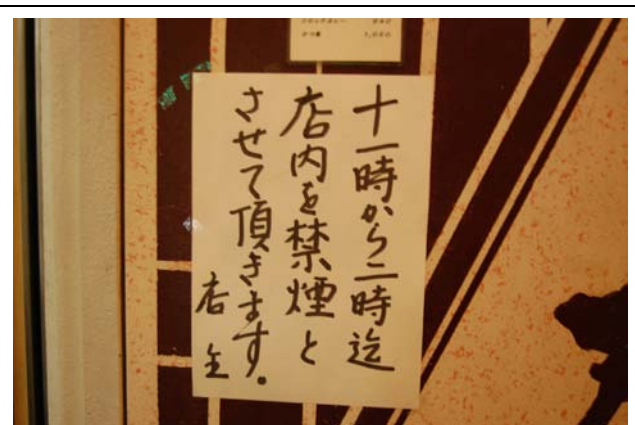 十一時から二時迄
店内を禁煙と
させて頂きます。
店主